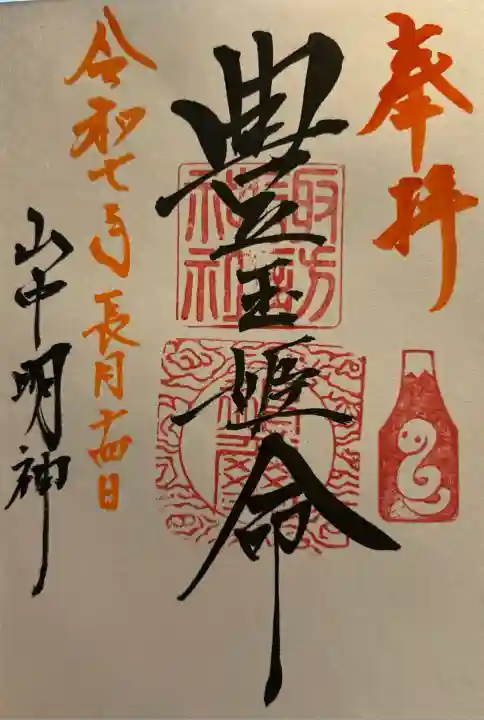 奉拝
豊玉姫命
諏訪
神社
令和七年長月十四日
山中明神